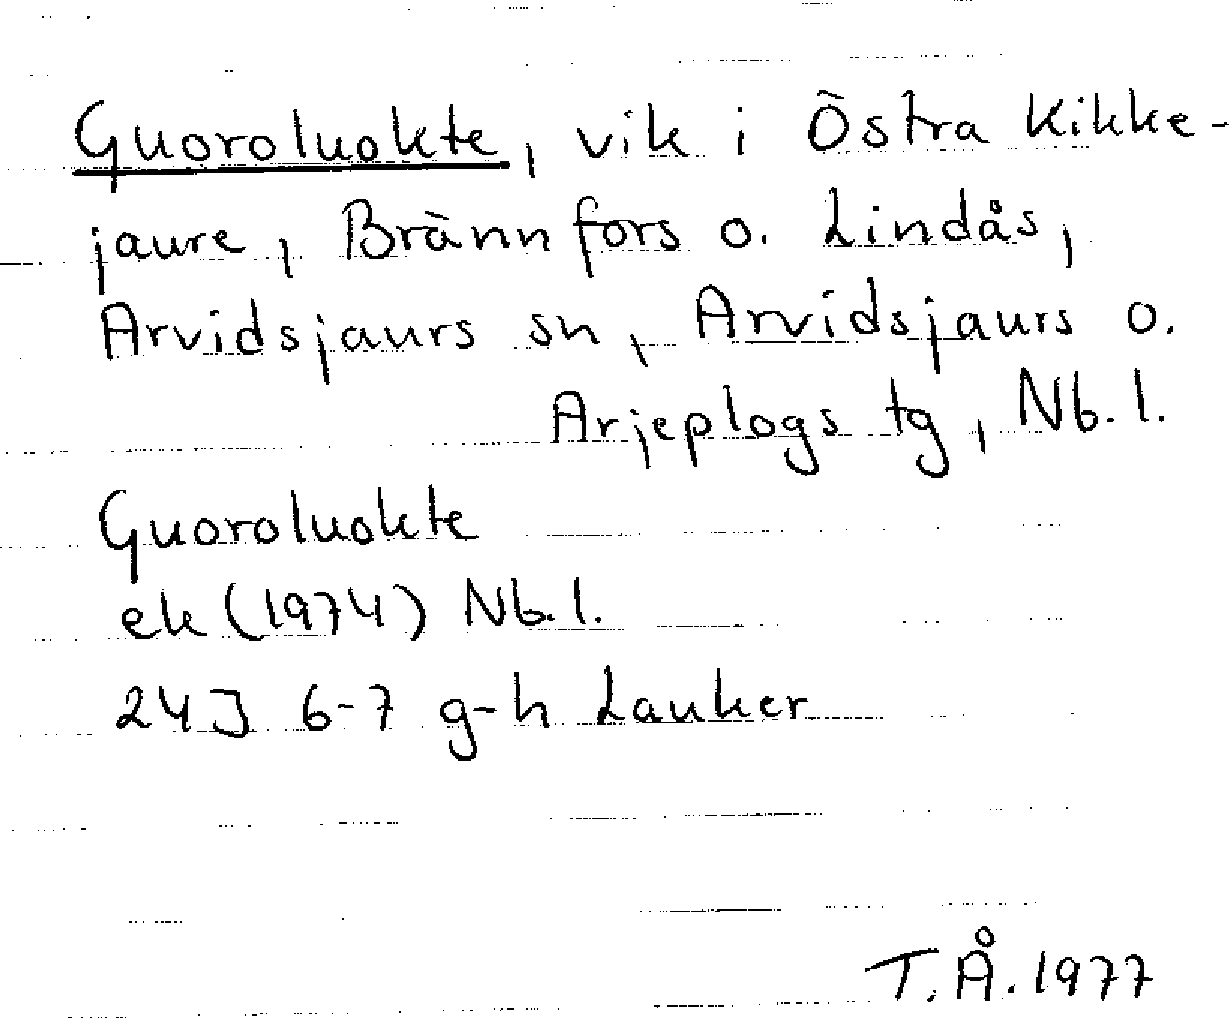 Guoroluokte, vik i Östra Kikke-
jaure, Brännfors o. Lindås,
Arvidsjaurs sn, Arvidsjaurs o.
Arjeplogs tg, Nb. l.
Guoroluokte
ek (1974) Nb. l.
24J 6-7 g-h Lauker
T. Å. 1977